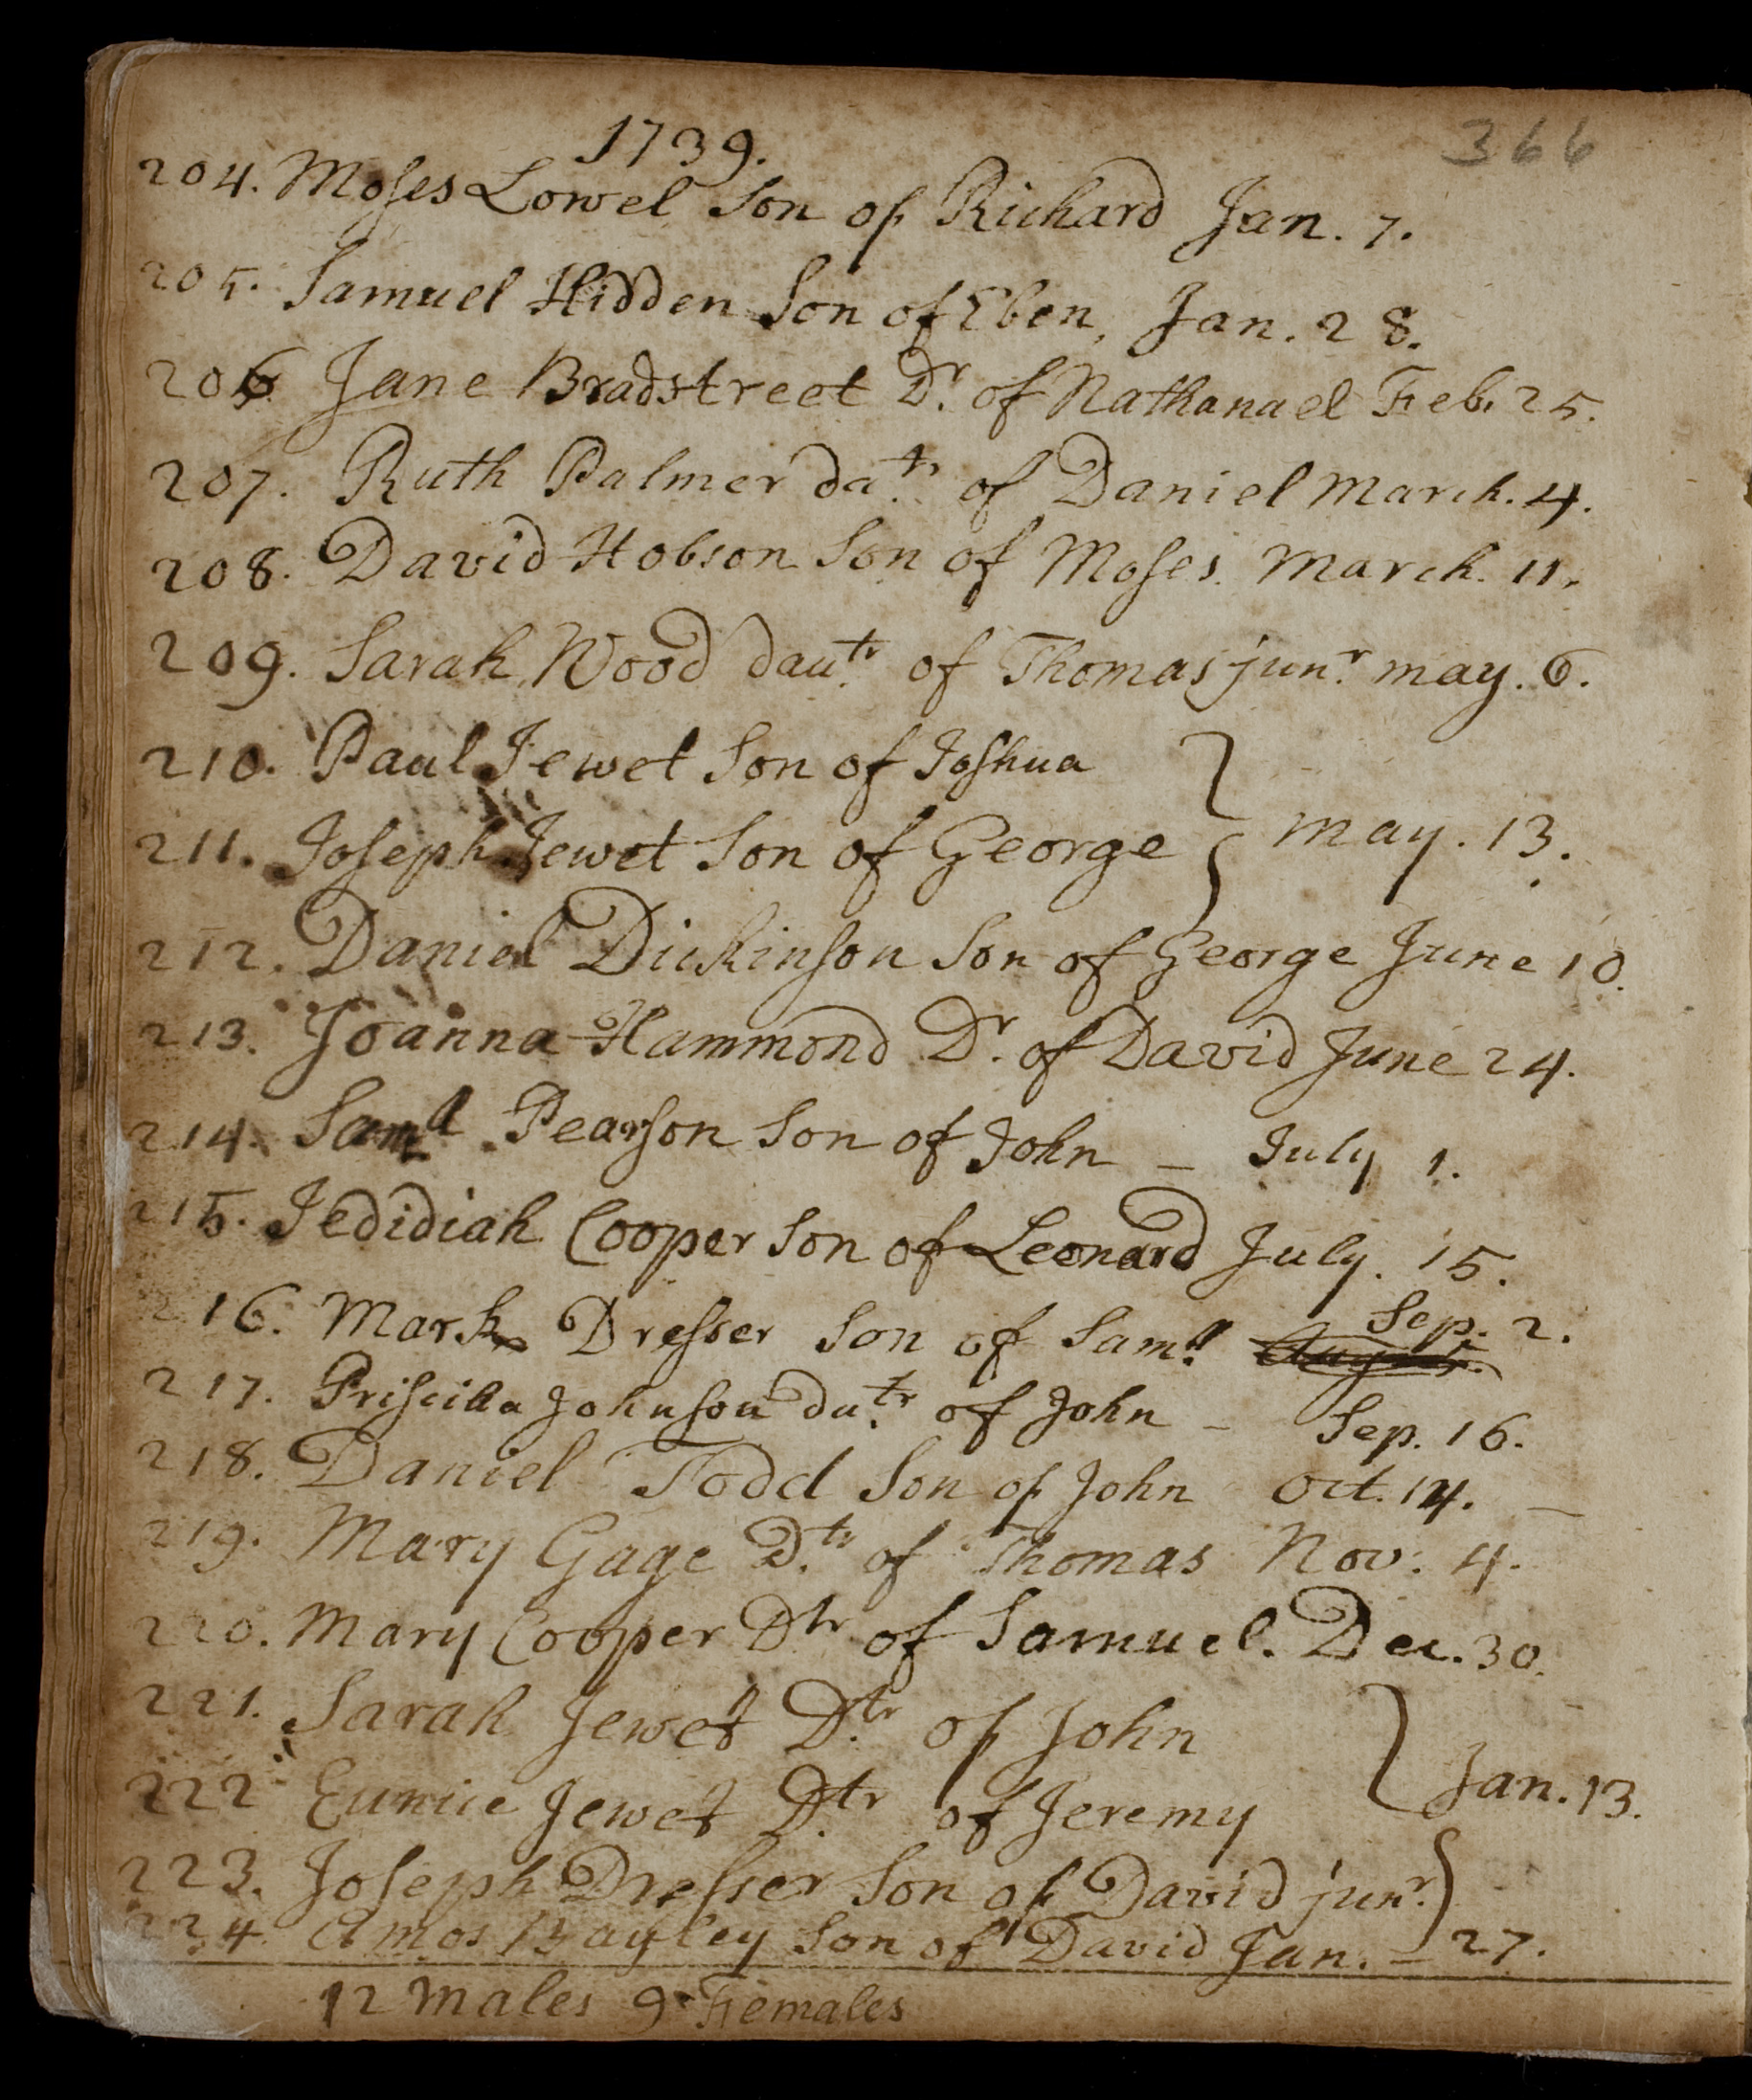 366
1739.
204. Moses Lowel Son of Richard Jan. 7.
205. Samuel Hidden Son of Eben, Jan. 28.
206 Jane Bradstreet Dr. of Nathanael Feb. 25.
207. Ruth Palmer datr. of Daniel March. 4.
208. David Hobson Son of Moses. March. 11.
209. Sarah Wood dautr. of Thomas junr. may. 6.
210. Paul Jewet Son of Joshua
211. Joseph Jewet Son of George } may. 13.
212. Daniel Dickinson Son of George June 10.
213. Joanna Hammond Dr. of David June 24.
214. Saml Pearson Son of John — July 1.
215. Jedidiah Cooper Son of Leonard July. 15.
216. Mark Dresser Son of Saml. August. Sep. 2.
217. Priscilla Johnson datr. of John — Sep. 16.
218. Daniel Todd Son of John Oct. 14. —
219. Mary Gage Dtr. of Thomas Nov. 4.
220. Mary Cooper Dtr of Samuel. Dec. 30.
221. Sarah Jewet Dtr. of John
222 Eunice Jewet Dtr. of Jeremy } Jan. 13.
223. Joseph Dresser Son of David junr. }
224. Amos Bayley Son of David Jan. — 27.
12 Males 9 Females